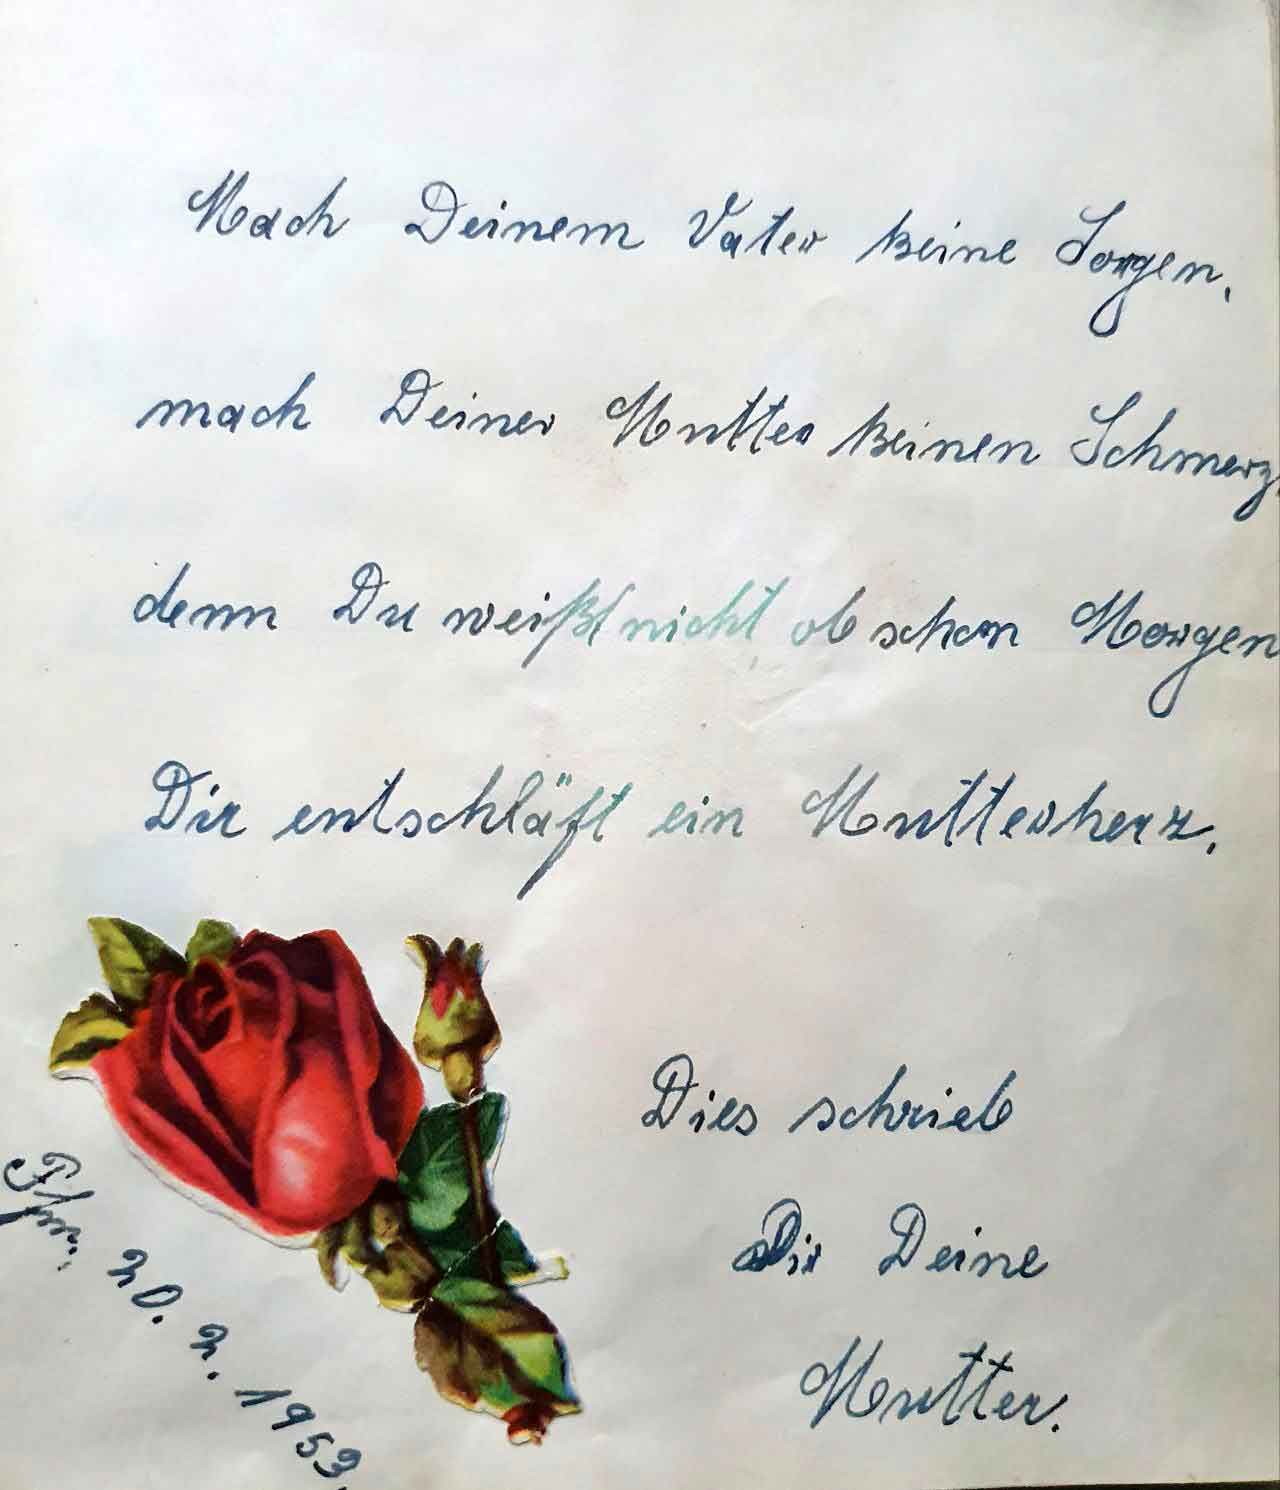 Mach Deinem Vater keine Sorgen,
mach Deiner Mutter keinen Schmerz,
denn Du weißt nicht, ob schon Morgen
Dir entschläft ein Mutterherz.
Dies schrieb
Dir Deine
Mutter.
Ffm. 20. 2. 1953.